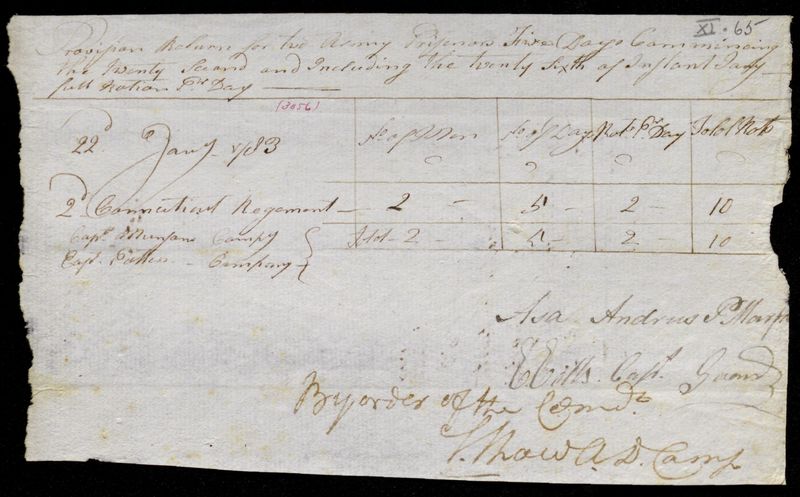 XI. 65
Provision Return for two Army Prisenors Five Days Commincing
the Twenty Second and Including the twenty Sixth of Instant Jany
full Ration Pr Day
(3056)
22d Jany 1783 No of Men No of Days Rats Pr Day Totol Rats
2d Connecticut Regement 2 5 2 10
Capt Compy Totol 2 5 2 10
Capt Company
Asa Andrus P Marsh
Capt Guard
By order of the Comdt
A. D. Camp